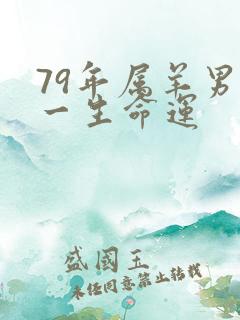 79年属羊男
一生命运
盛国玉
未经同意禁止转载